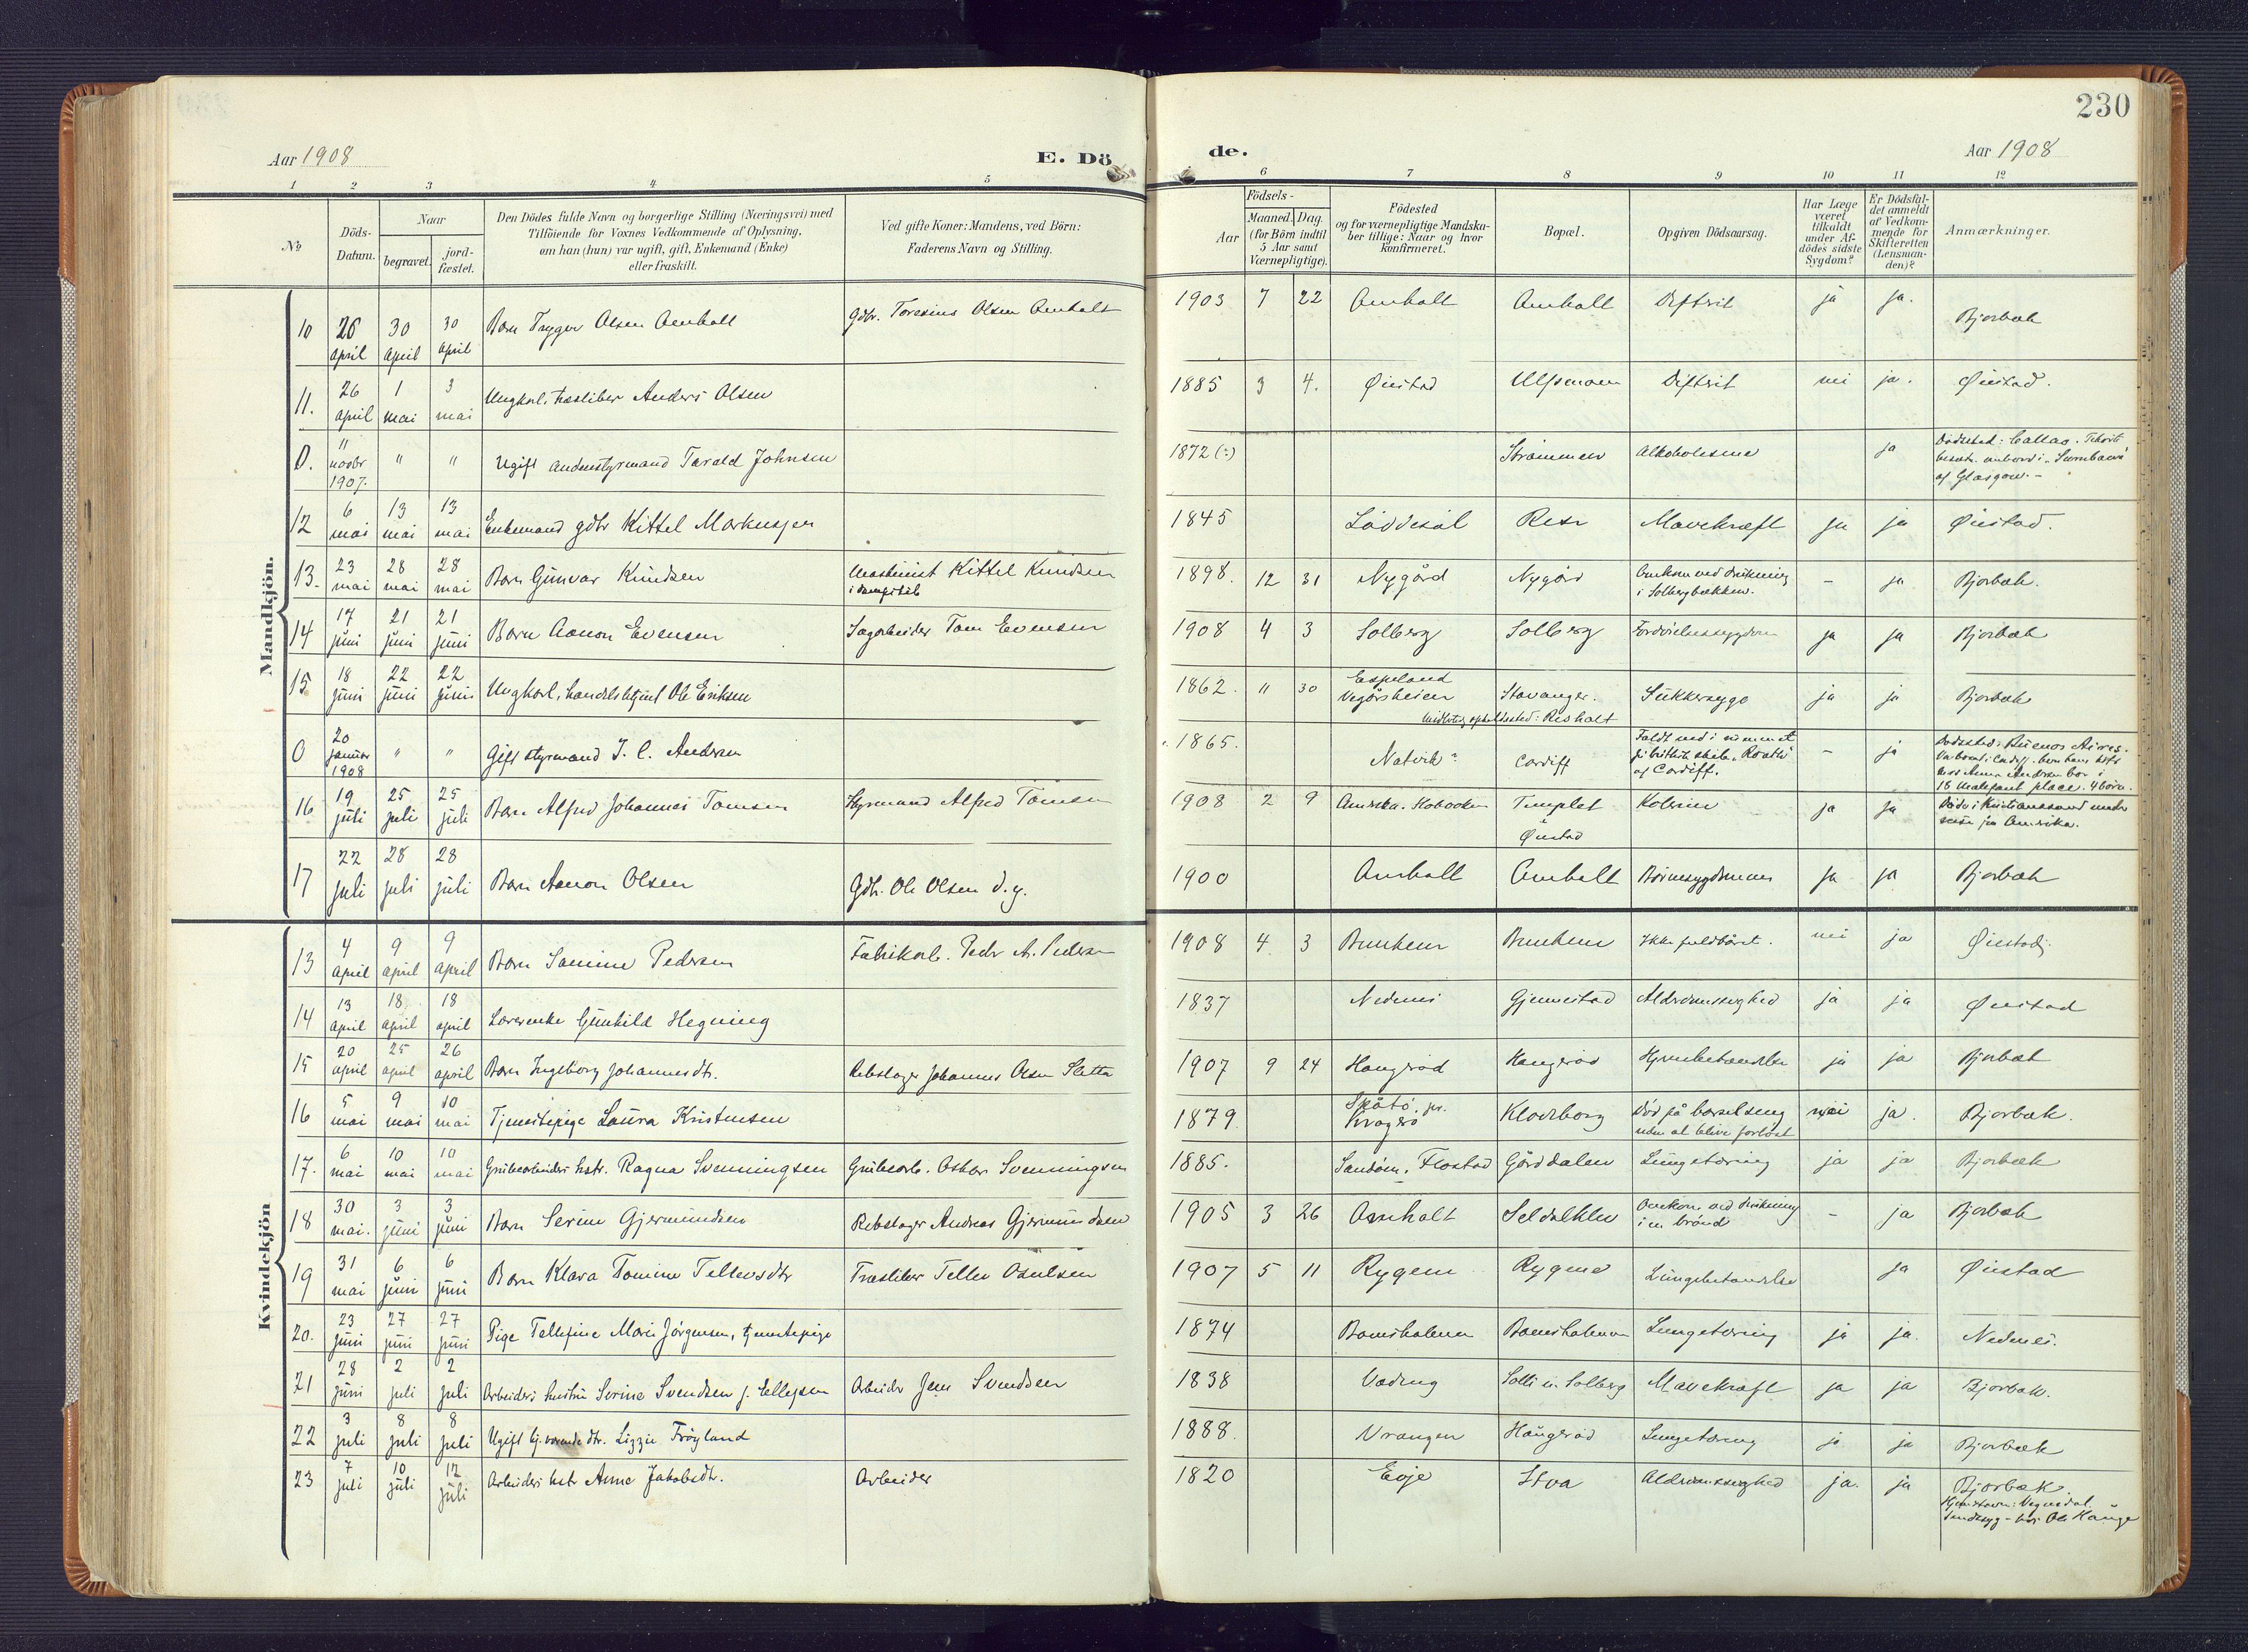 230
Aar 1908
E. Dö
de.
Aar 1908
1 2 3 4 5 6 7 8 9 10 11 12
No
Döds-
Datum.
Naar
begravet.
jord-
fæstet.
Den Dödes fulde Navn og borgerlige Stilling (Næringsvei) med
Tilföiende for Voxnes Vedkommende af Oplysning,
om han (hun) var ugift, gift, Enkemand (Enke)
eller fraskilt.
Ved gifte Koner: Mandens, ved Börn:
Faderens Navn og Stilling.
Födsels-
Aar
Maaned. Dag.
(for Börn indtil
5 Aar samt
Værnepligtige).
Födested
og for værnepligtige Mandska-
ber tillige: Naar og hvor
konfirmeret.
Bopæl.
Opgiven Dödsaarsag.
Har Læge
været
tilkaldt
under Af-
dödes sidste
Sygdom?
Er Dödsfal-
det anmeldt
af Vedkom-
mende for
Skifteretten
(Lensman-
den)?
Anmærkninger.
Mandkjön.
10 26 april 30 april 30 april Barn Trygve Olsen Amholt Gdbr. Toresius Olsen Amholt 1903 7 22 Amholt Amholt Diftrit ja ja. Bjorbæk
11. 26 april 1 mai 3 mai Ungkarl, træsliber Anders Olsen 1885 3 4. Øiestad Ulfsmoen Diftrit nei ja. Øiestad.
0. 11 novbr 1907. " " Ugift andenstyrmand Tarald Johnsen 1872 (?) Strømmen Alkoholisme ja Dødssted: Callao.
af Glasgow. -
12 6 mai 13 mai 13 mai Enkemand gdbr Kittel Markussen 1845 Løddesøl Rise Mavekræft ja ja Øiestad.
13. 23 mai 28 mai 28 mai Barn Gunvar Knudsen Maskinist Kittel Knudsen 1898. 12 31 Nygård Nygård Omkom ved drukning
i Solbergbækken. - ja Bjorbæk.
14 17 juni 21 juni 21 juni Barn Aanon Evensen Sagarbeider Tom Evensen 1908 4 3 Solberg Solberg Fordøielsessygdom ja ja Bjorbæk
15 18 juni 22 juni 22 juni Ungkarl, handelsbetjent Ole Eriksen 1862. 11 30 Espeland
Vegårsheien Stavanger. Sukkersyge ja ja Bjorbæk
Midlertidig opholdssted: Risholt
0 20 januar 1908 " " Gift styrmand J. C. Andersen 1865. Natvik? Cardiff Faldt ned i rummet
på britisk skib "Roath"
af Cardiff. - ja Dødssted: Buenos Aires.
16 19 juli 25 juli 25 juli Barn Alfred Johannes Tomsen Styrmand Alfred Tomsen 1908 2 9 Amerika. Hoboken Templet
Øiestad Kolerine ja ja Døde i Kristianssand under
reise fra Amerika.
17 22 juli 28 juli 28 juli Barn Aanon Olsen Gdbr. Ole Olsen d.y. 1900 Amholt Amholt Brimesygdommen ja ja Bjorbæk
Kvindekjön
13 4 april 9 april 9 april Barn Samine Pedersen Fabrikarb. Peder A. Pedersen 1908 4 3 Bruskeum Ikke fuldbåret. nei ja Øiestad
14 13 april 18 april 18 april Lærerenke Gunhild Hegning 1837 Nedenes Gjennestad Alderdomssvaghed ja ja Øiestad
15 20 april 25 april 26 april Barn Ingeborg Johannesdtr. Rebslager Johannes Olsen Sletta 1907 9 24 Haugerød Haugerød Hjernebetændelse ja ja Bjorbæk
16 5 mai 9 mai 10 mai Tjenestepige Laura Kristensen 1879. Skåtø pr.
Kragerø Kloverborg Død på barselseng
uden at blive forløst nei ja. Bjorbæk.
17. 6 mai 10 mai 10 mai Grubearbeiders hstr. Ragna Svenningsen Grubearb. Oskar Svenningsen 1885. Sandøen, Flostad Gårddalen Lungetæring ja ja Bjorbæk
18 30 mai. 3 juni 3 juni Barn Serine Gjermundsen Rebslager Andreas Gjermundsen 1905 3 26 Amholt Seldalklev Omkom ved drukning
i en brønd - ja Bjorbæk
19 31 mai 6 juni 6 juni Barn Klara Tomine Tellevsdtr Træsliber Tellev Osulsen 1907 5 11 Rygene Rygene Lungebetændelse ja Øiestad
20. 23 juni 27 juni 27 juni Pige Tellefine Marie Jørgensen, tjenestepige 1874 Bomsholmen Bomsholmen Lungetæring ja ja. Nedenes.
21 28 juni 2 juli 2 juli Arbeiders hustru Serine Svendsen f. Ellefsen Arbeider Jens Svendsen 1838 Vading Solli in. Solberg Mavekræft ja ja Bjorbæk.
22 3 juli 8 juli 8 juli Ugift hj.værende dtr. Lizzie Frøyland 1888. Vrangen Haugerød Lungetæring ja ja Bjorbæk
23 7 juli 10 juli 12 juli Arbeiders hstr Anne Jakobsdtr. Arbeider 1820 Evje Stva Alderdomssvaghed ja. ja Bjorbæk.